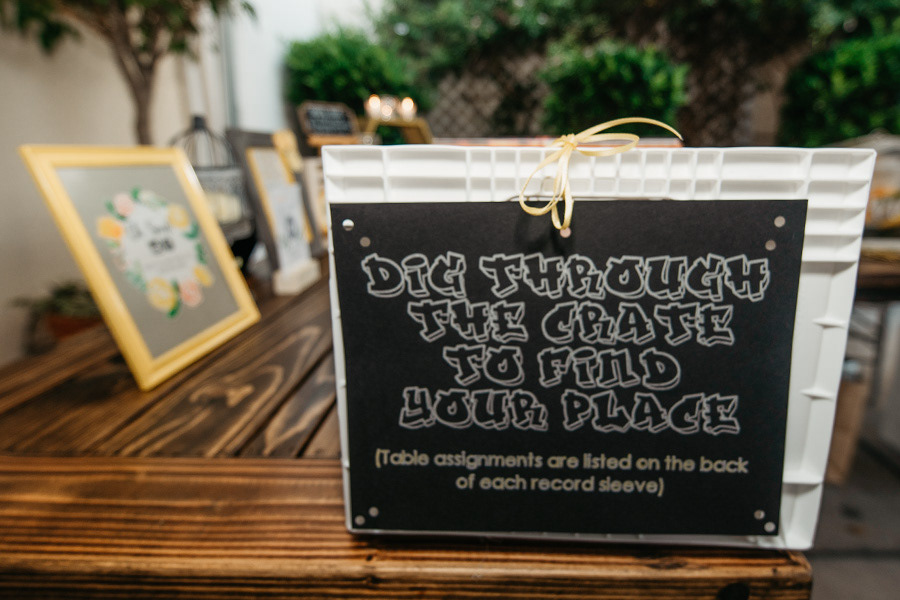 DiG THROUGH
THE CRATE
TO FiND
YOUR PLACE
(Table assignments are listed on the back
of each record sleeve)